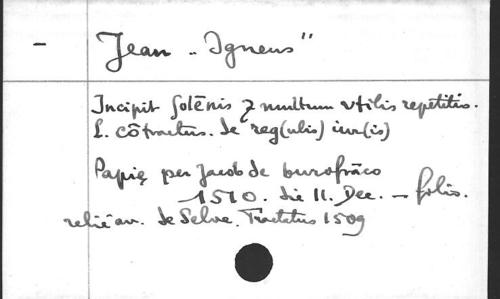 – Jean „Igneus"
Incipit solēnis ⁊ multum vtilis repetitio.
L. cōtractus. de reg(ulis) iur(is)
Papię per Jacob de burofrāco
1510. die 11. Dec. – folio.
relié av. de Selve. Tractatus 1509